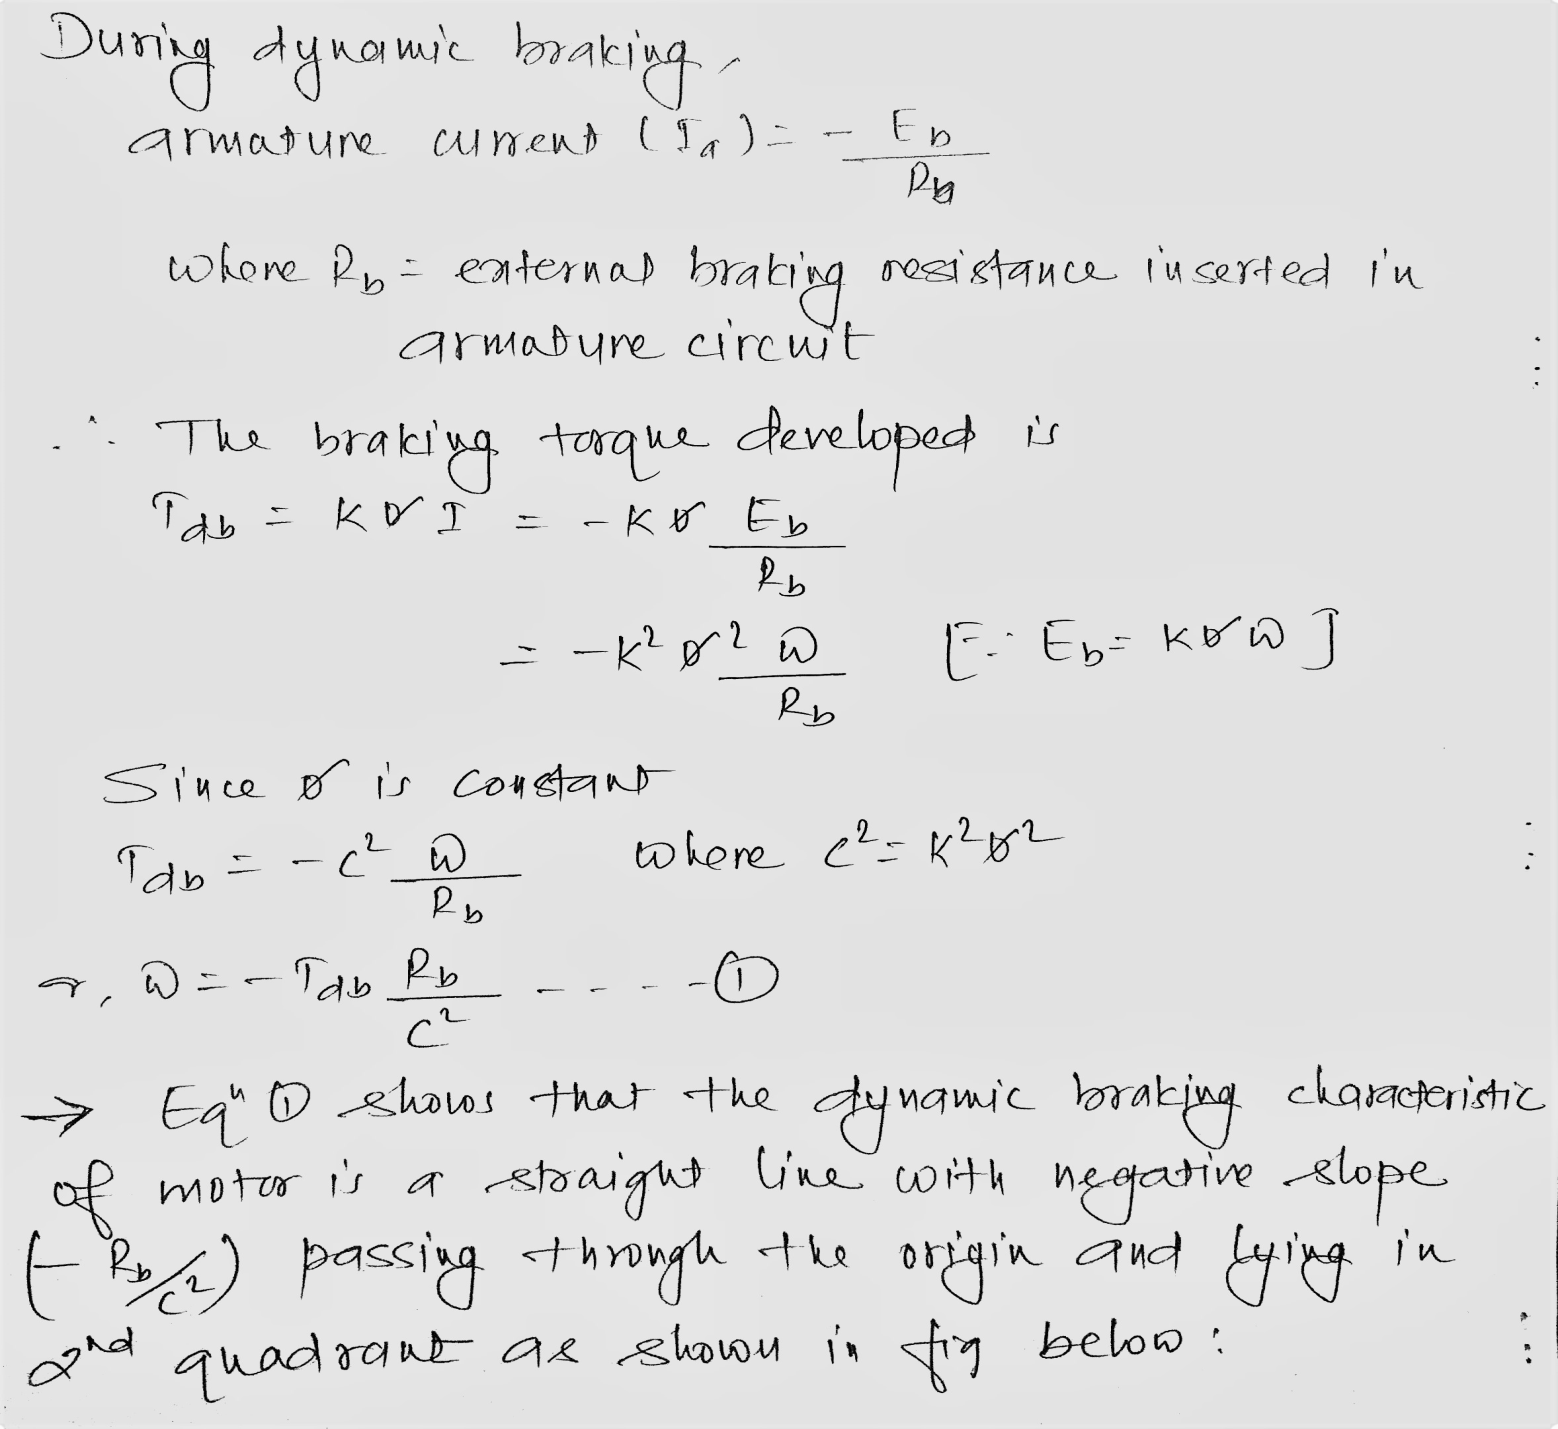 During dynamic braking,
armature current (Ia) = - Eb/Rb
where Rb = external braking resistance inserted in
armature circuit
∴ The braking torque developed is
Tdb = KØI = -KØ Eb/Rb
= -K²Ø² ω/Rb [∵ Eb = KØω]
Since Ø is constant
Tdb = -C² ω/Rb where C² = K²Ø²
or, ω = -Tdb Rb/C² - - - - ①
→ Eqⁿ ① shows that the dynamic braking characteristic
of motor is a straight line with negative slope
(- Rb/C²) passing through the origin and lying in
2nd quadrant as shown in fig below :